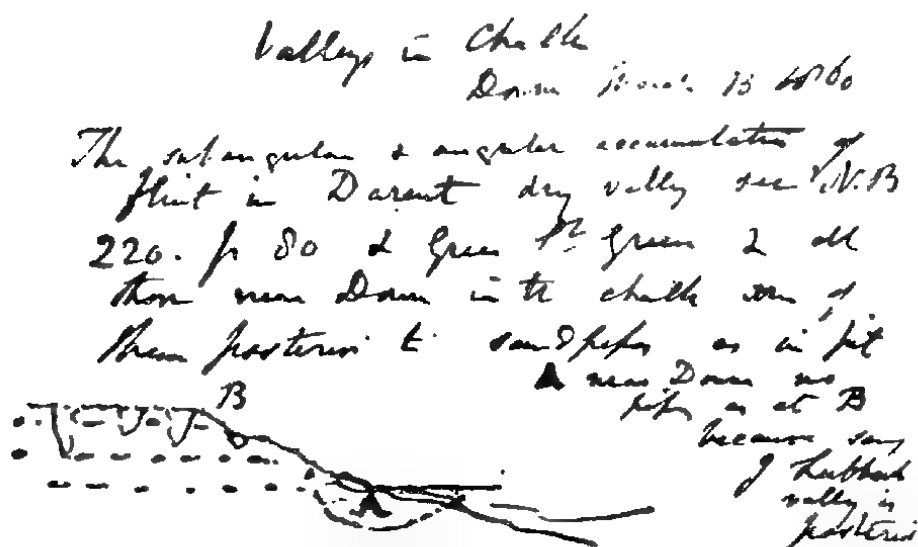 Valleys in Chalk
Down March 13 1860
The subangular & angular accumulation of
flint in Darent dry valley see N.B
220. p 80 & Green St Green & all
those near Down in the chalk some of
them posterior to sand pipes as in pit
A near Down no
pipes as at B
because say
J Lubbock
valley is
posterior
B
A